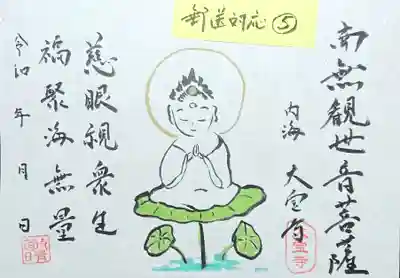 郵送対応⑤
南無観世音菩薩
内海 大宝寺
慈眼視衆生
福聚海無量
令和 年 月 日